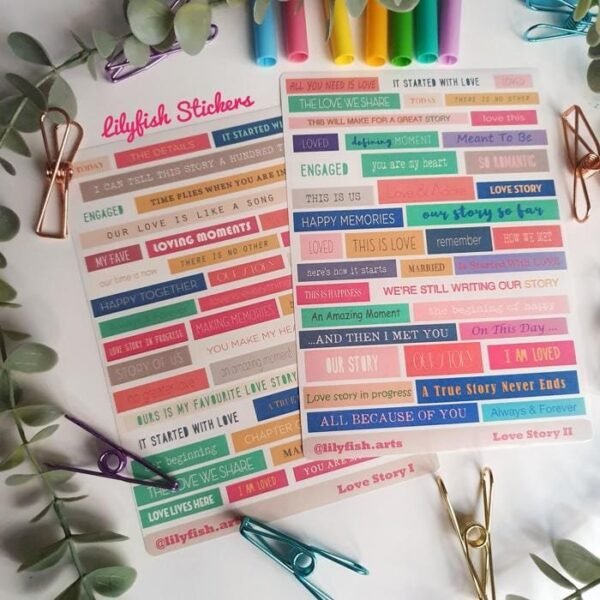 Lilyfish Stickers
TODAY THE DETAILS IT STARTED WI
I CAN TELL THIS STORY A HUNDRED T
ENGAGED TIME FLIES WHEN YOU ARE IN
OUR LOVE IS LIKE A SONG
MY FAVE LOVING MOMENTS
our time is now THERE IS NO OTHER
HAPPY TOGETHER OUR STORY
LOVE STORY IN PROGRESS MAKING MEMORIES
STORY OF US YOU MAKE MY HEA
no greater love an amazing moment
OURS IS MY FAVOURITE LOVE STORY
IT STARTED WITH LOVE A TRUE
our beginning CHAPTER
THE LOVE WE SHARE AND
LOVE LIVES HERE I AM LOVED YOU ARE MY
@lilyfish.arts Love Story I
ALL YOU NEED IS LOVE IT STARTED WITH LOVE
THE LOVE WE SHARE TODAY THERE IS NO OTHER
THIS WILL MAKE FOR A GREAT STORY love this
LOVED defining MOMENT Meant To Be
ENGAGED you are my heart SO ROMANTIC
THIS IS US LOVE STORY
HAPPY MEMORIES our story so far
LOVED THIS IS LOVE remember HOW WE MET
here's how it starts MARRIED It Started With Love
THIS IS HAPPINESS WE'RE STILL WRITING OUR STORY
An Amazing Moment the begining of happy
...AND THEN I MET YOU On This Day ...
OUR STORY OUR STORY I AM LOVED
Love story in progress A True Story Never Ends
ALL BECAUSE OF YOU Always & Forever
@lilyfish.arts Love Story II